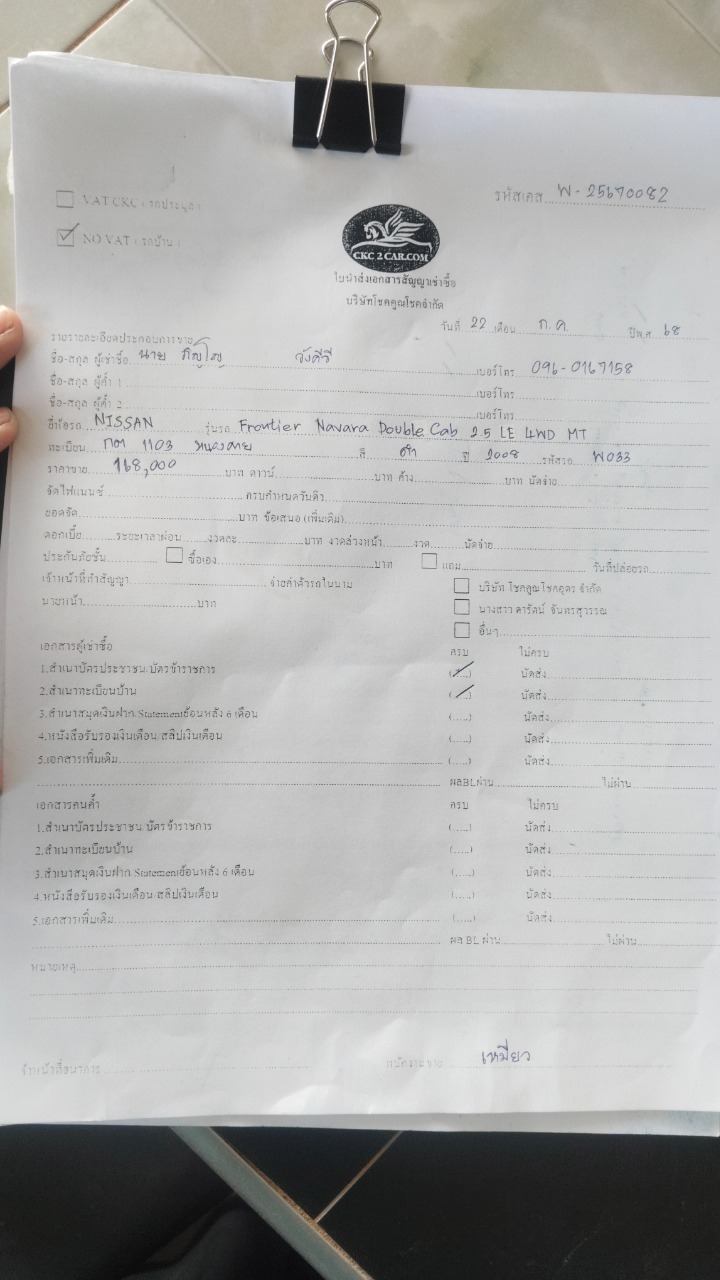 รหัสเคส W-25670082
VAT CKC ( รถประมูล )
NO VAT ( รถบ้าน )
CKC 2 CAR.COM
ใบนำส่งเอกสารสัญญาเช่าซื้อ
บริษัทโชคคูณโชคจำกัด
วันที่ 22 เดือน ก.ค. ปีพ.ศ 68
รายรายละเอียดประกอบการขาย
ชื่อ-สกุล ผู้เช่าซื้อ นาย เบอร์โทร 096-0167158
ชื่อ-สกุล ผู้ค้ำ 1 เบอร์โทร
ชื่อ-สกุล ผู้ค้ำ 2 เบอร์โทร
ยี่ห้อรถ NISSAN รุ่นรถ Frontier Navara Double Cab 2.5 LE 4WD MT
ทะเบียน กต 1103 หนองคาย สี ดำ ปี 2008 รหัสรถ W033
ราคาขาย 168,000 บาท ดาวน์ บาท ค้าง บาท นัดจ่าย
จัดไฟแนนซ์ ครบกำหนดวันที่
ยอดจัด บาท ข้อเสนอ (เพิ่มเติม)
ดอกเบี้ย ระยะเวลาผ่อน งวดละ บาท งวดล่วงหน้า งวด นัดจ่าย
ประกันภัยชั้น ซื้อเอง บาท แถม วันที่ปล่อยรถ
เจ้าหน้าที่ทำสัญญา จ่ายค่าตัวรถในนาม บริษัท โชคคูณโชคอุดร จำกัด
นายหน้า บาท นางสาว ดารัตน์ จันทรสุวรรณ
อื่นๆ
เอกสารผู้เช่าซื้อ ครบ ไม่ครบ
1.สำเนาบัตรประชาชน/บัตรข้าราชการ (.../...) นัดส่ง
2.สำเนาทะเบียนบ้าน (.../...) นัดส่ง
3.สำเนาสมุดเงินฝาก/Statementย้อนหลัง 6 เดือน (.....) นัดส่ง
4.หนังสือรับรองเงินเดือน/สลิปเงินเดือน (.....) นัดส่ง
5.เอกสารเพิ่มเติม (.....) นัดส่ง
ผลBLผ่าน ไม่ผ่าน
เอกสารคนค้ำ ครบ ไม่ครบ
1.สำเนาบัตรประชาชน/บัตรข้าราชการ (.....) นัดส่ง
2.สำเนาทะเบียนบ้าน (.....) นัดส่ง
3.สำเนาสมุดเงินฝาก/Statementย้อนหลัง 6 เดือน (.....) นัดส่ง
4.หนังสือรับรองเงินเดือน/สลิปเงินเดือน (.....) นัดส่ง
5.เอกสารเพิ่มเติม (.....) นัดส่ง
ผล BL ผ่าน ไม่ผ่าน
หมายเหตุ
เจ้าหน้าที่ธนาคาร พนักงานขาย เหมียว